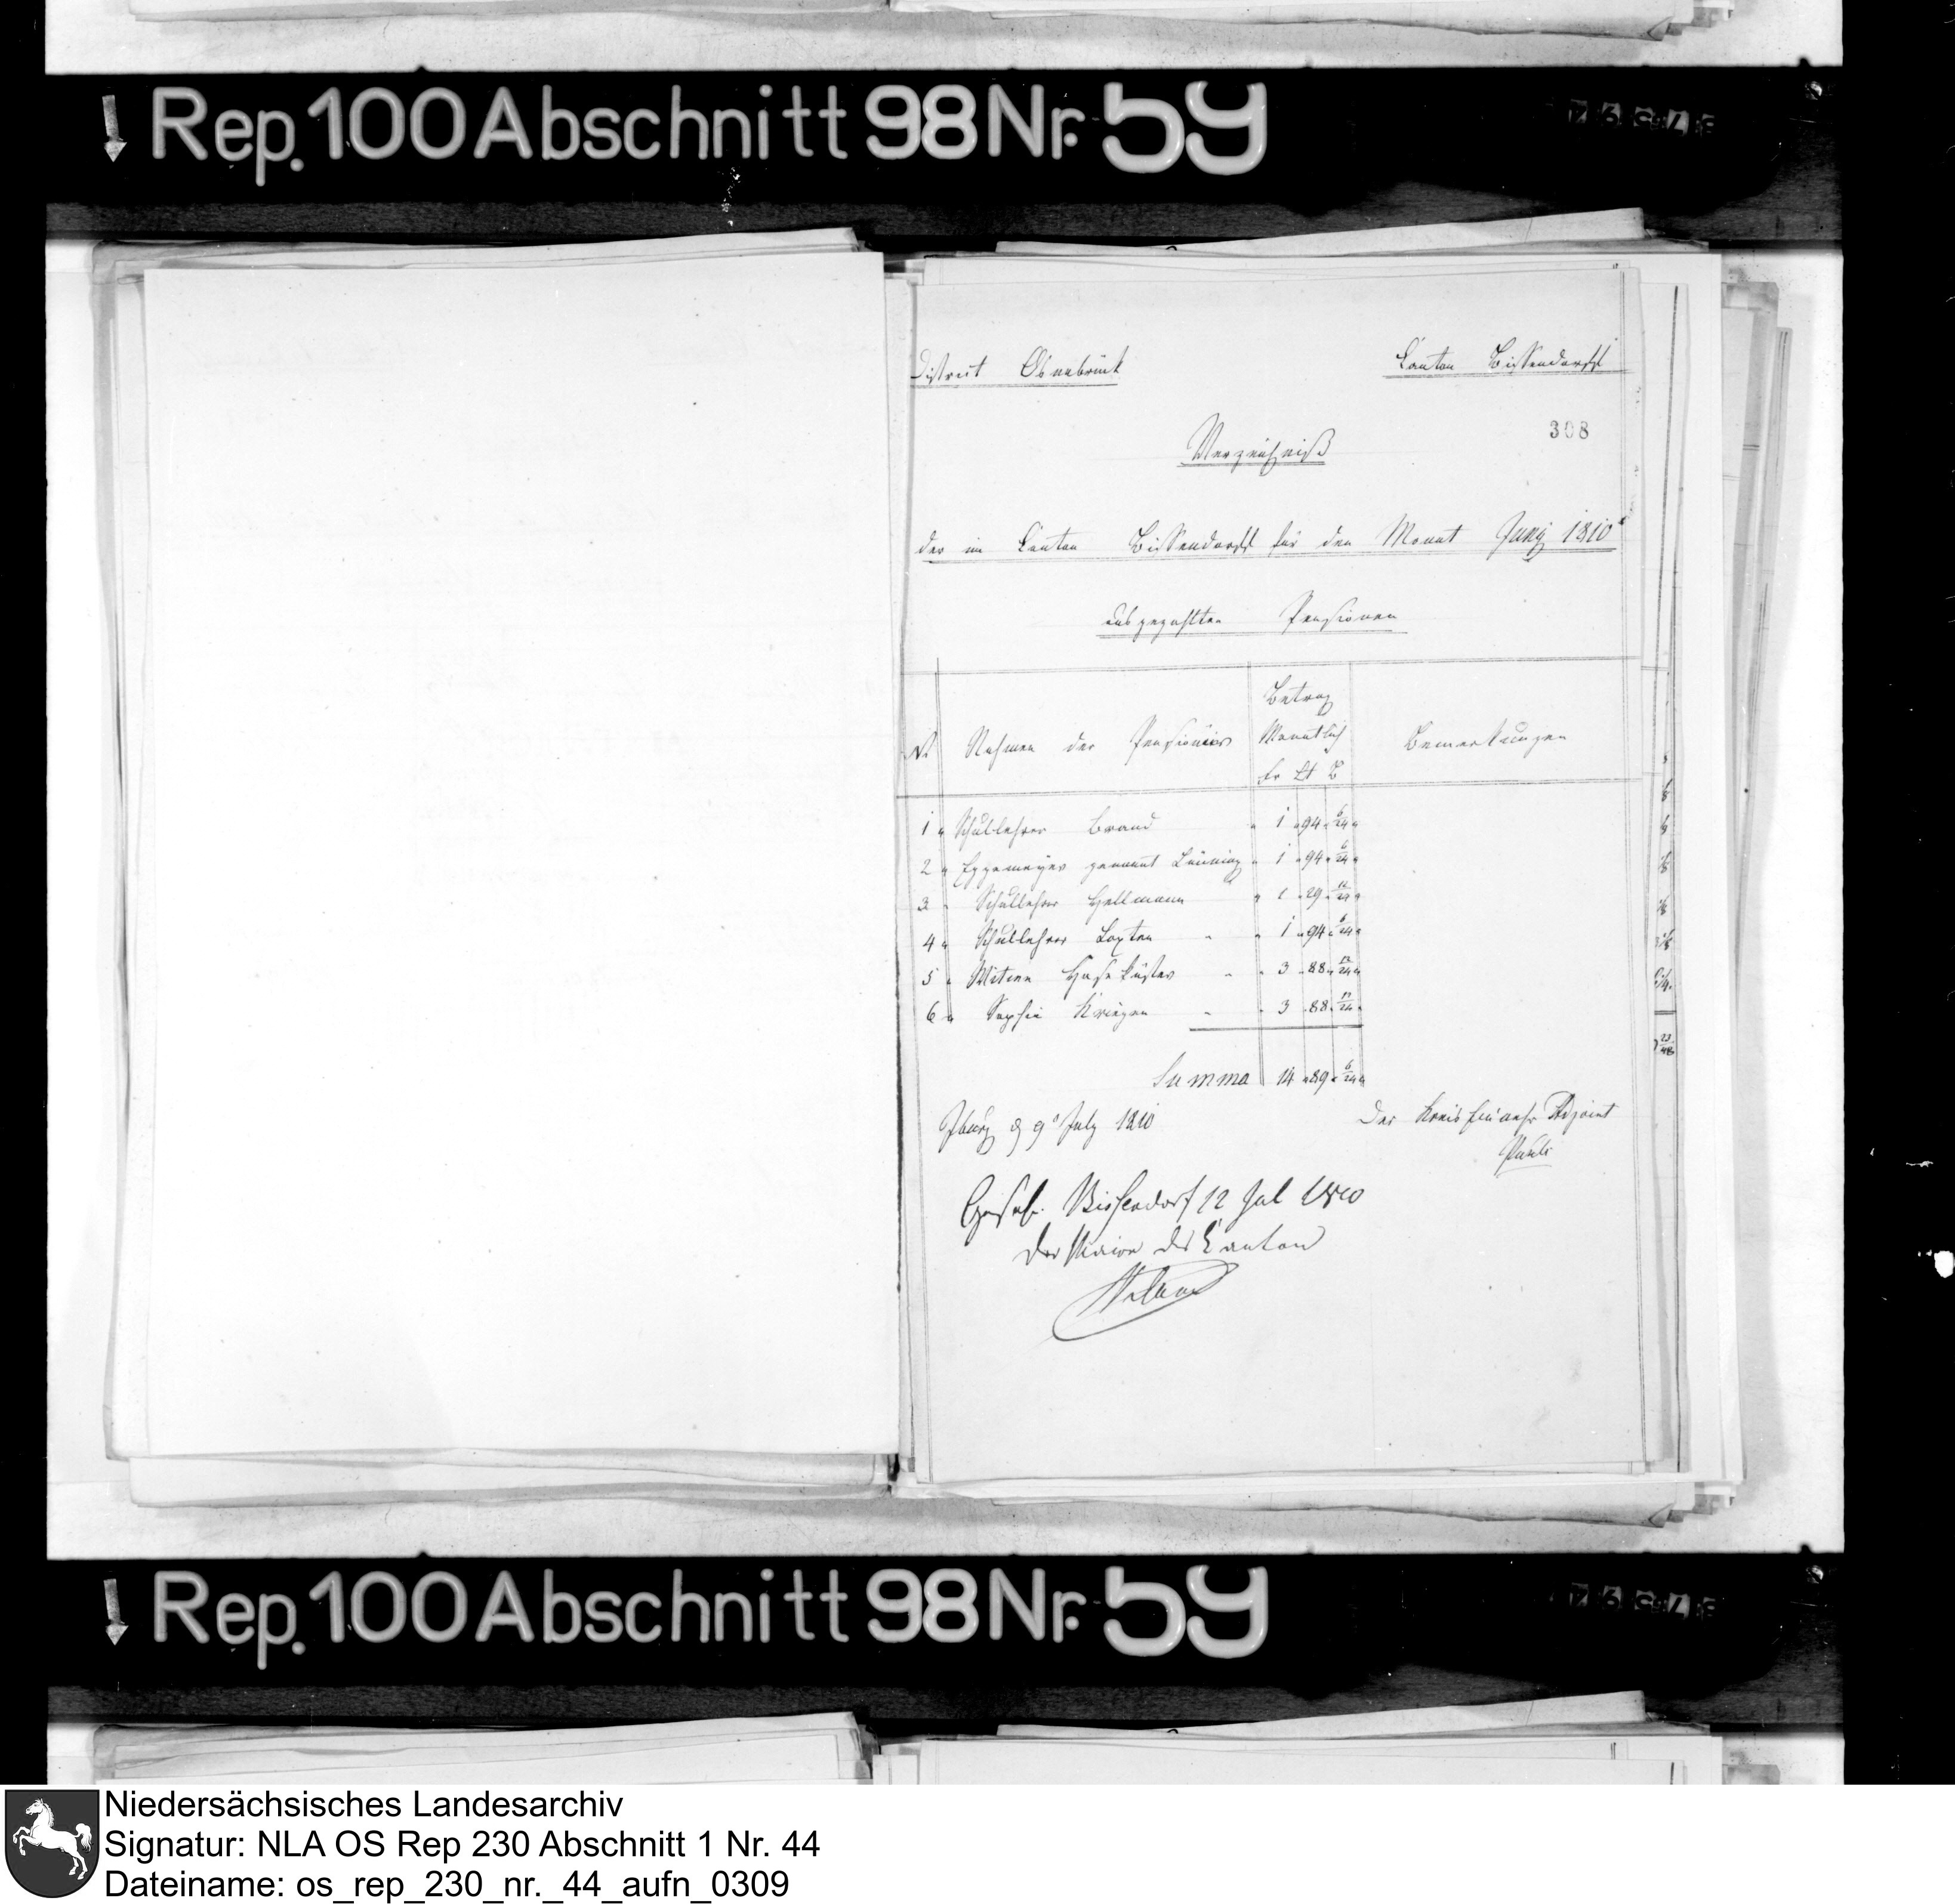 Rep. 100 Abschnitt 98 Nr. 59
District Osnabrück
Canton Bissendorff
308
Verzeichniß
der im Canton Bissendorff für den Monat Juny 1810
ausgezahlten Pensionen
Nr Nahmen der Pensionairs Betrag Monatlich Bemerkungen
Fr Ct
1 Schullehrer Brand 1 94 6/24
2 Eggemeyer genannt Lüning 1 94 6/24
3 Schullehrer Hellmann 1 29 12/24
4 Schullehrer Loxten 1 94 6/24
5 Witwe Hasekuster 3 88 12/24
6 Sophie Kriegen 3 88 12/24
Summa 14 89 6/24
Iburg d 9 July 1810
Der Kreis Adjoint
Pauli
Gesehn. Bissendorf 12 Jul 1810
Der Maire des Canton
Rep. 100 Abschnitt 98 Nr. 59
Niedersächsisches Landesarchiv
Signatur: NLA OS Rep 230 Abschnitt 1 Nr. 44
Dateiname: os_rep_230_nr._44_aufn_0309